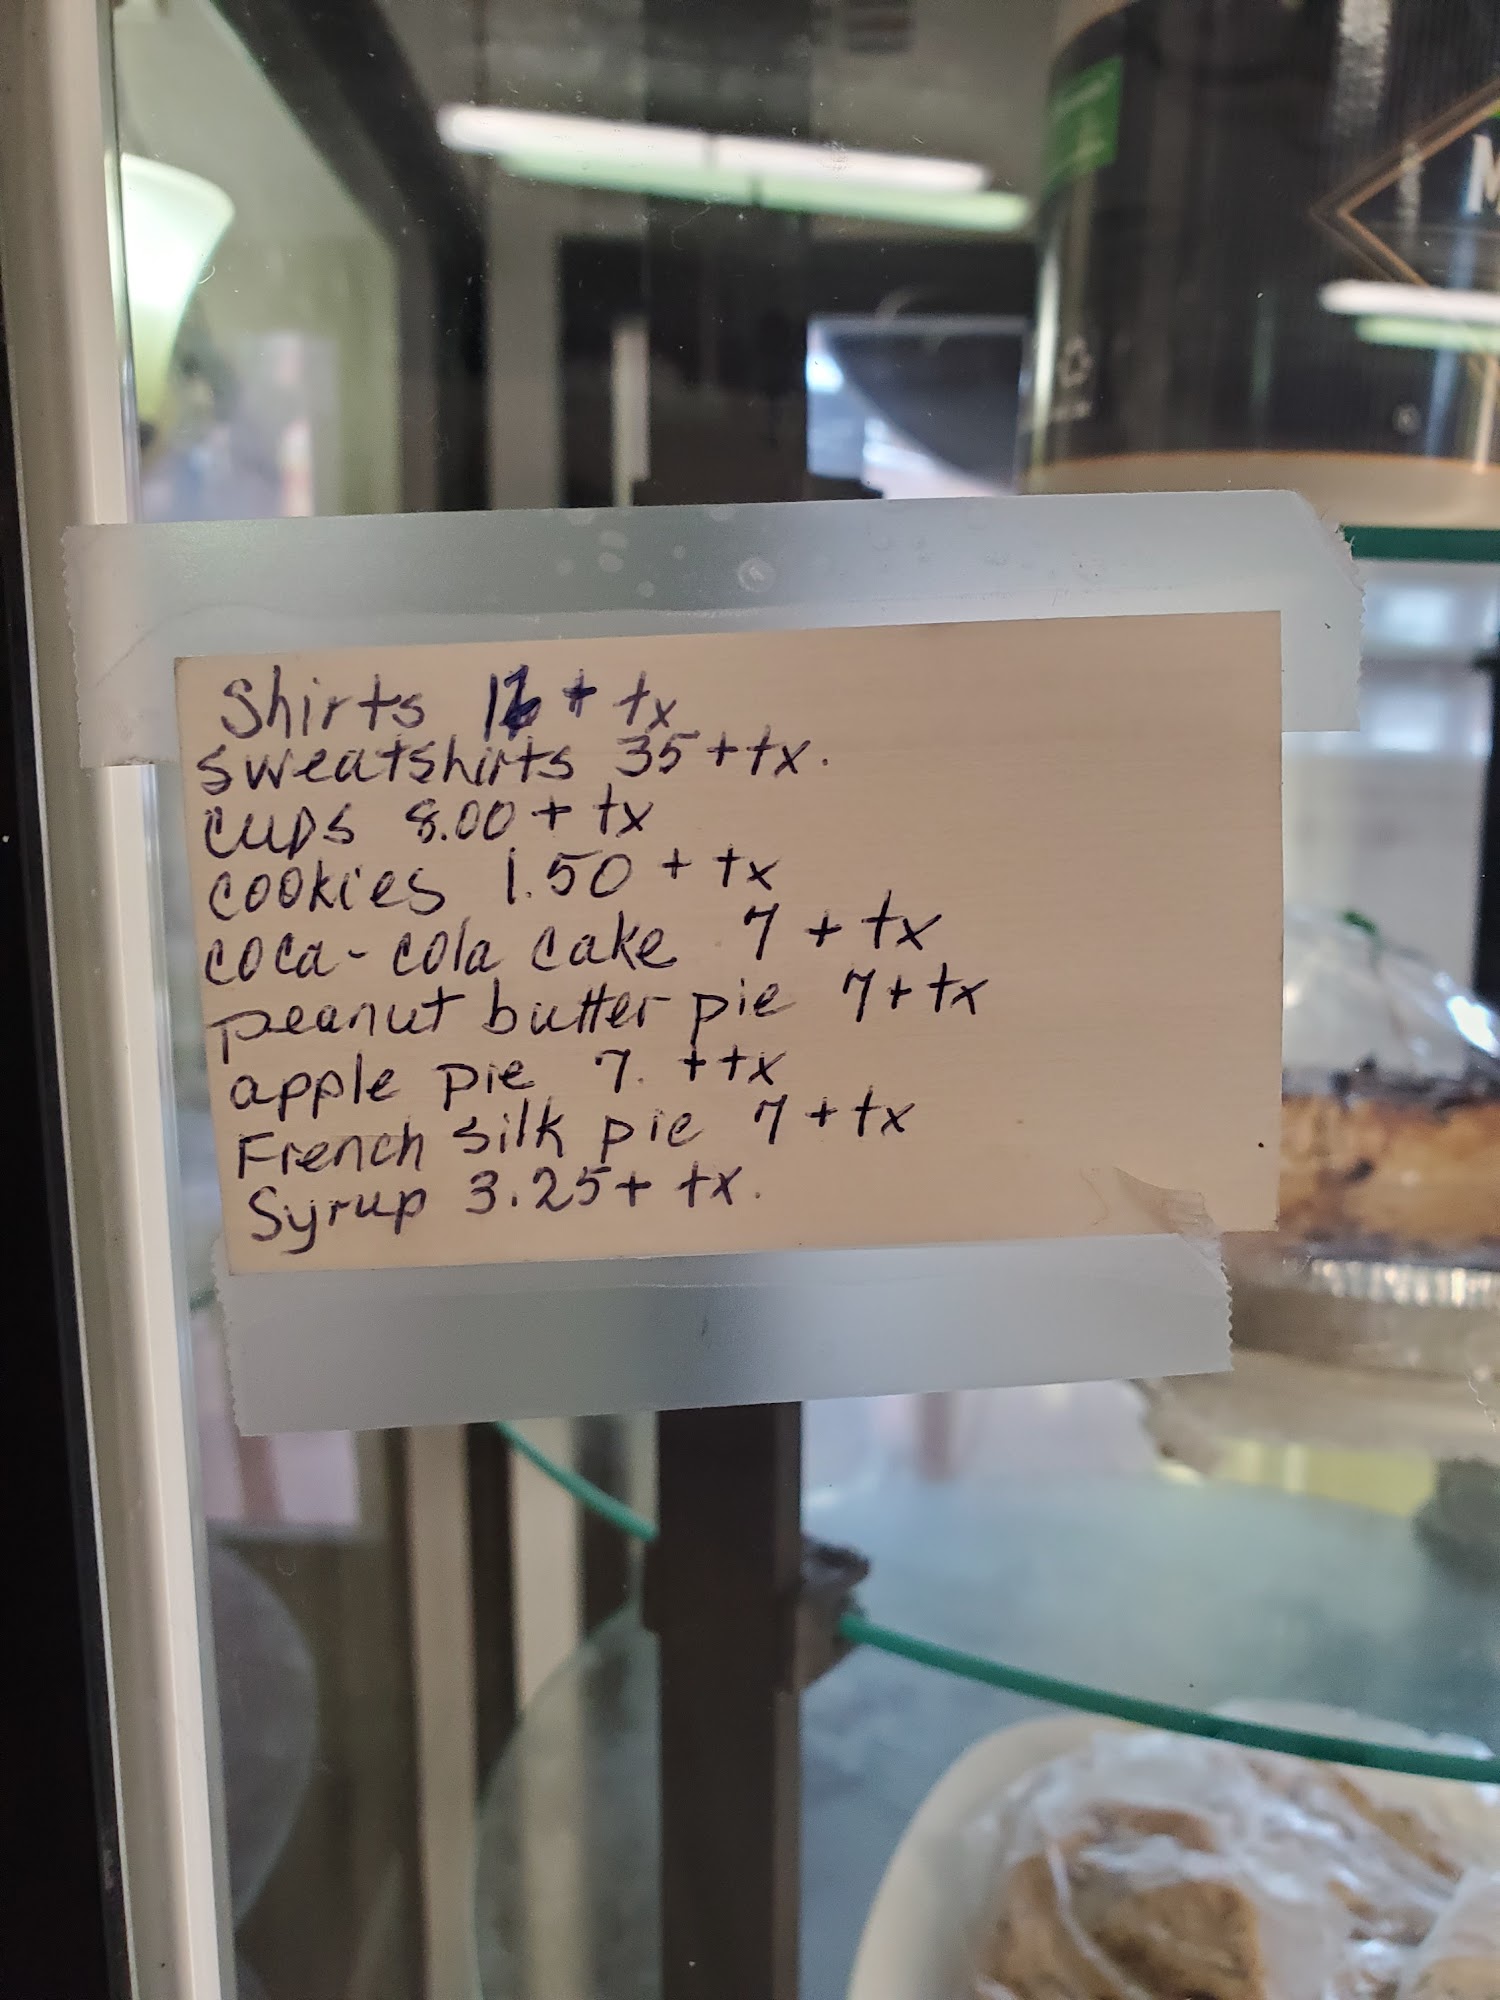 Shirts 16 + tx
sweatshirts 35 + tx.
cups 8.00 + tx
cookies 1.50 + tx
coca-cola cake 7 + tx
peanut butter pie 7 + tx
apple pie 7. + tx
French silk pie 7 + tx
Syrup 3.25 + tx.